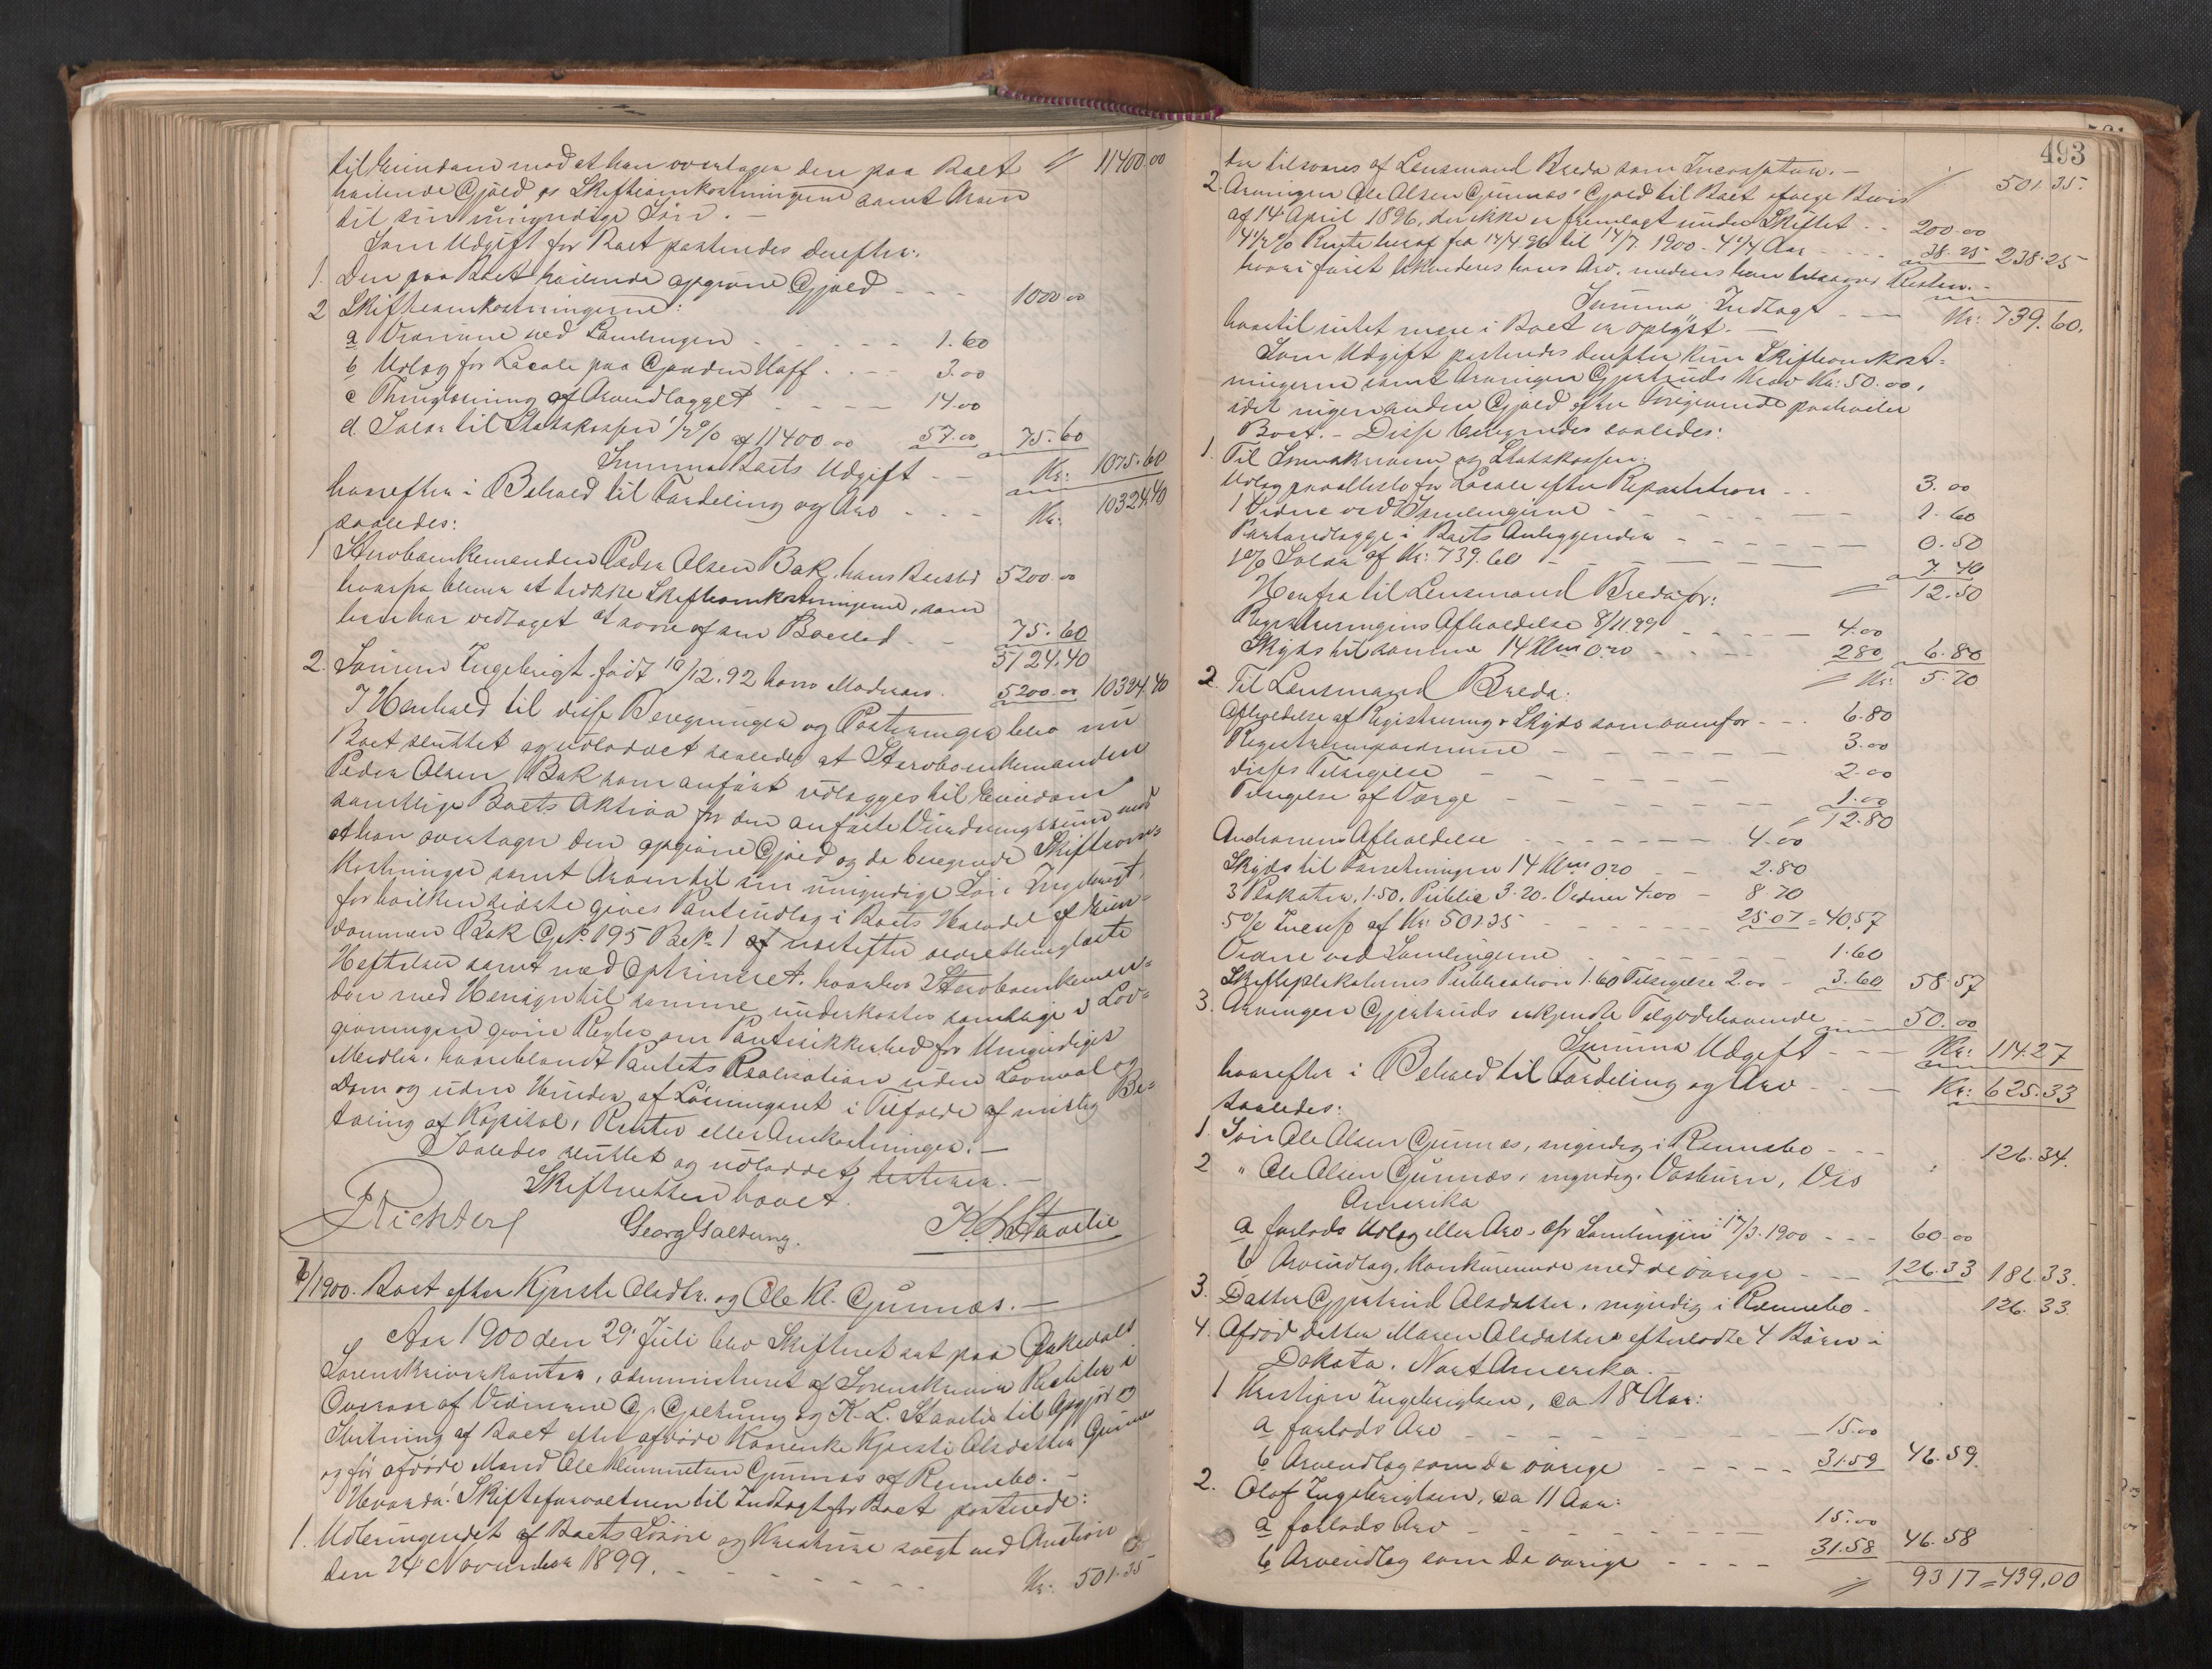 til Eiendom mod at han overtager den paa Boet " 11400.00
heilende Gjæld og Skifteomkostningerne samt Arven
til sin umyndige Søn. —
Som Udgift for Boet posteredes derefter:
1. Den paa Boet heilende opgivne Gjæld - - - 1000.00
2 Skifteomkostningerne:
a Vidnerne ved Samlingen - - - - - 1.60
b Udlæg for Locale paa Haff - - - 3.00
c Thinglæsning af Arveudlægget - - - 14.00
d. Salær til Statskassen 1/2 % af 11400.00 57.00 75.60
Summa Boets Udgift - - Kr: 1075.60
hvorefter i Behold til Fordeling og Arv - - - Kr. 10324.40
saaledes:
1 Enkemanden Peder Olsen Bak, hans Boeslod 5200.00
hvorfra bliver at trække Skifteomkostningerne, som
han har vedtaget at svare af sin Boeslod - - 75.60
5124.40
2. Sønnen Ingebrigt, født 19/12.92 hans Mødrearv. 5200.00 10324.40
I Henhold til disse Beregninger og Posteringer blev nu
Boet sluttet og udloddet saaledes at Enkemanden
Peder Olsen Bak som anført udlægges til Eiendom
samtlige Boets Aktiva for den anførte Vurderingssum mod
at han overtager den opgivne Gjæld og de beregnede Skifteom=
kostninger samt Arven til sin umyndige Søn Ingebrigt,
for hvilken sidste gives Pantudlæg i Boets Halvdel af Eien-
dommen Bak Gr. 195 Br. 1 af næstefter
Heftelser samt med Optrinsret, hvorhos Enkeman=
den med Hensyn til samme underkastes samtlige i Lov=
givningen givne Regler om Pantesikkerhed for Umyndiges
Midler, hvoriblandt Pantets Realisation uden Lovmaal og
Dom og uden Hinder af Løsningsret i Tilfælde af mislig Be=
taling af Kapital, Renter eller Omkostninger. —
Saaledes sluttet og udloddet, testerer. —
Skifteretten hævet.
Richter Georg Galtung. K. L. Stavelie
7/1900. Boet efter Kjersti Olsdtr. og Ole Kl. Gunnæs. —
Aar 1900 den 29' Juli blev Skifteret sat paa Orkedals
Sorenskriverkontor, administreret af Sorenskriver Richter i
Overvær af Vidnerne G. Galtung og K. L. Stavelie til Opgjør &
Slutning af Boet efter afdøde Kjersti Olsdatter Gunnæs
og før afdøde Mand Ole Klemmetsen Gunnæs af Rennebo. —
Hvorda: Skifteforvalteren til Indtægt for Boet posterede:
1. Udbringendet af Boets Løsøre og Kreature solgt ved Auction
den 24' November 1899. - - - - - - Kr. 501.35
493
der tilsvares af Lensmand Breda som Incassator. — " 501.35.
2. Arvingen Ole Olsen Gunnæs' Gjæld til Boet ifølge Bevis
af 14' April 1896, der ikke er fremlagt under Skiftet - - 200.00
4 1/2 % Rente heraf fra 14/4.96 til 14/7. 1900 - 4 1/4 Aar - - - 38.25 238.25
hvori først likvideres hans Arv, medens han tilsvarer Resten. -
Summa Indtægt - - - Kr: 739.60.
hvortil intet mere i Boet er oplyst. —
Som Udgift posteredes derefter kun Skifteomkost=
ningerne samt Arvingen Gjertruds Krav Kr: 50.00,
idet ingen anden Gjæld efter Foregivende paahviler
Boet. — Disse beregnedes saaledes:
1. Til Sorenskriveren og Statskassen:
Udlæg for Locale efter Repartition - - 3.00
1 Vidne ved Samlingerne - - - - - 1.60
Portoudlægge i Boets Anliggender - - - - - 0.50
1% Salær af Kr: 739.60 - - - - - 7.40
12.50
Herfra til Lensmand Breda for:
Registreringens Afholdelse 8/11.99 - - - 4.00
Skyds til samme 14 Km 0.20 - - - 2.80 6.80
" Kr: 5.70
2. Til Lensmand Breda:
Afholdelse af Registrering & Skyds som ovenfor - - - 6.80
Registreringsvidnerne - - - - - 3.00
disses Tilsigelse - - - - - 2.00
Tilsigelse af Værge - - - - - 1.00
12.80
Auctionens Afholdelse - - - - - 4.00
Skyds til Forretningen 14 Km 0.20 - - 2.80
3 Plakater, 1.50, Public 3.20. Vidner 4.00 - 8.70
5% Incasso af Kr: 501.35 - - - - 25.07 = 40.57
Vidne ved Samlingerne - - - - - 1.60
Skifteplakaternes Publication 1.60 Tilsigelse 2.00 - 3.60 58.57
3. Arvingen Gjertruds erkjendte Tilgodehavende - - 50.00
Summa Udgift - - - Kr: 114.27
hvorefter i Behold til Fordeling og Arv - - - Kr: 625.33
saaledes:
1. Søn Ole Olsen Gunnæs, myndig i Rennebo - - - 126.34.
2 " Ole Olsen Gunnæs, myndig, Vosburn, Vis
Amerika
a forlods Udlæg eller Arv, cfr Samlingen 17/3.1900 - - - 60.00
b Arveudlæg, konkurrerende med de øvrige - - - 126.33 186.33.
3. Datter Gjertrud Olsdatter, myndig i Rennebo - 126.33.
4. Afdød datter Maren Olsdatters efterladte 4 Børn i
Dakota, Nort Amerika. —
1 Kristian Ingebrigtsen, ca 18 Aar:
a forlods Arv - - - - - 15.00
b Arveudlæg som de øvrige - - - - 31.59 46.59.
2. Olof Ingebrigtsen, ca 11 Aar:
a forlods Arv - - - - - 15.00
b Arveudlæg som de øvrige - - - - 31.58 46.58
" 93.17 = 439.00